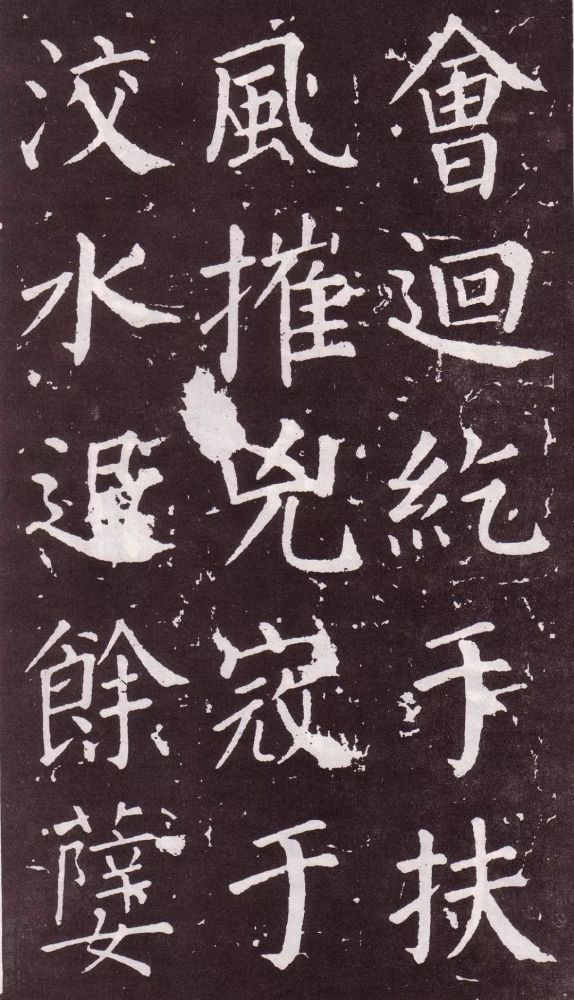 會迴紇于扶
風摧兇寇于
洨水餘㜸